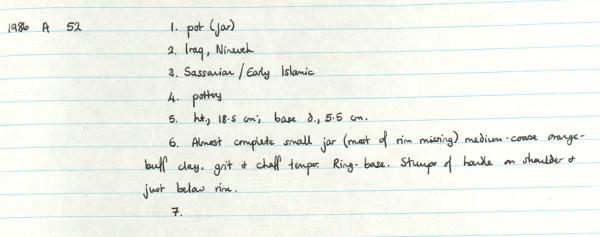 1986 A 52 1. pot (jar)
2. Iraq, Nineveh
3. Sassanian / Early Islamic
4. pottery
5. ht, 18.5 cm; base d., 5.5 cm.
6. Almost complete small jar (most of rim missing) medium-coarse orange-
buff clay. grit & chaff temper. Ring-base. Stumps of handle on shoulder &
just below rim.
7.